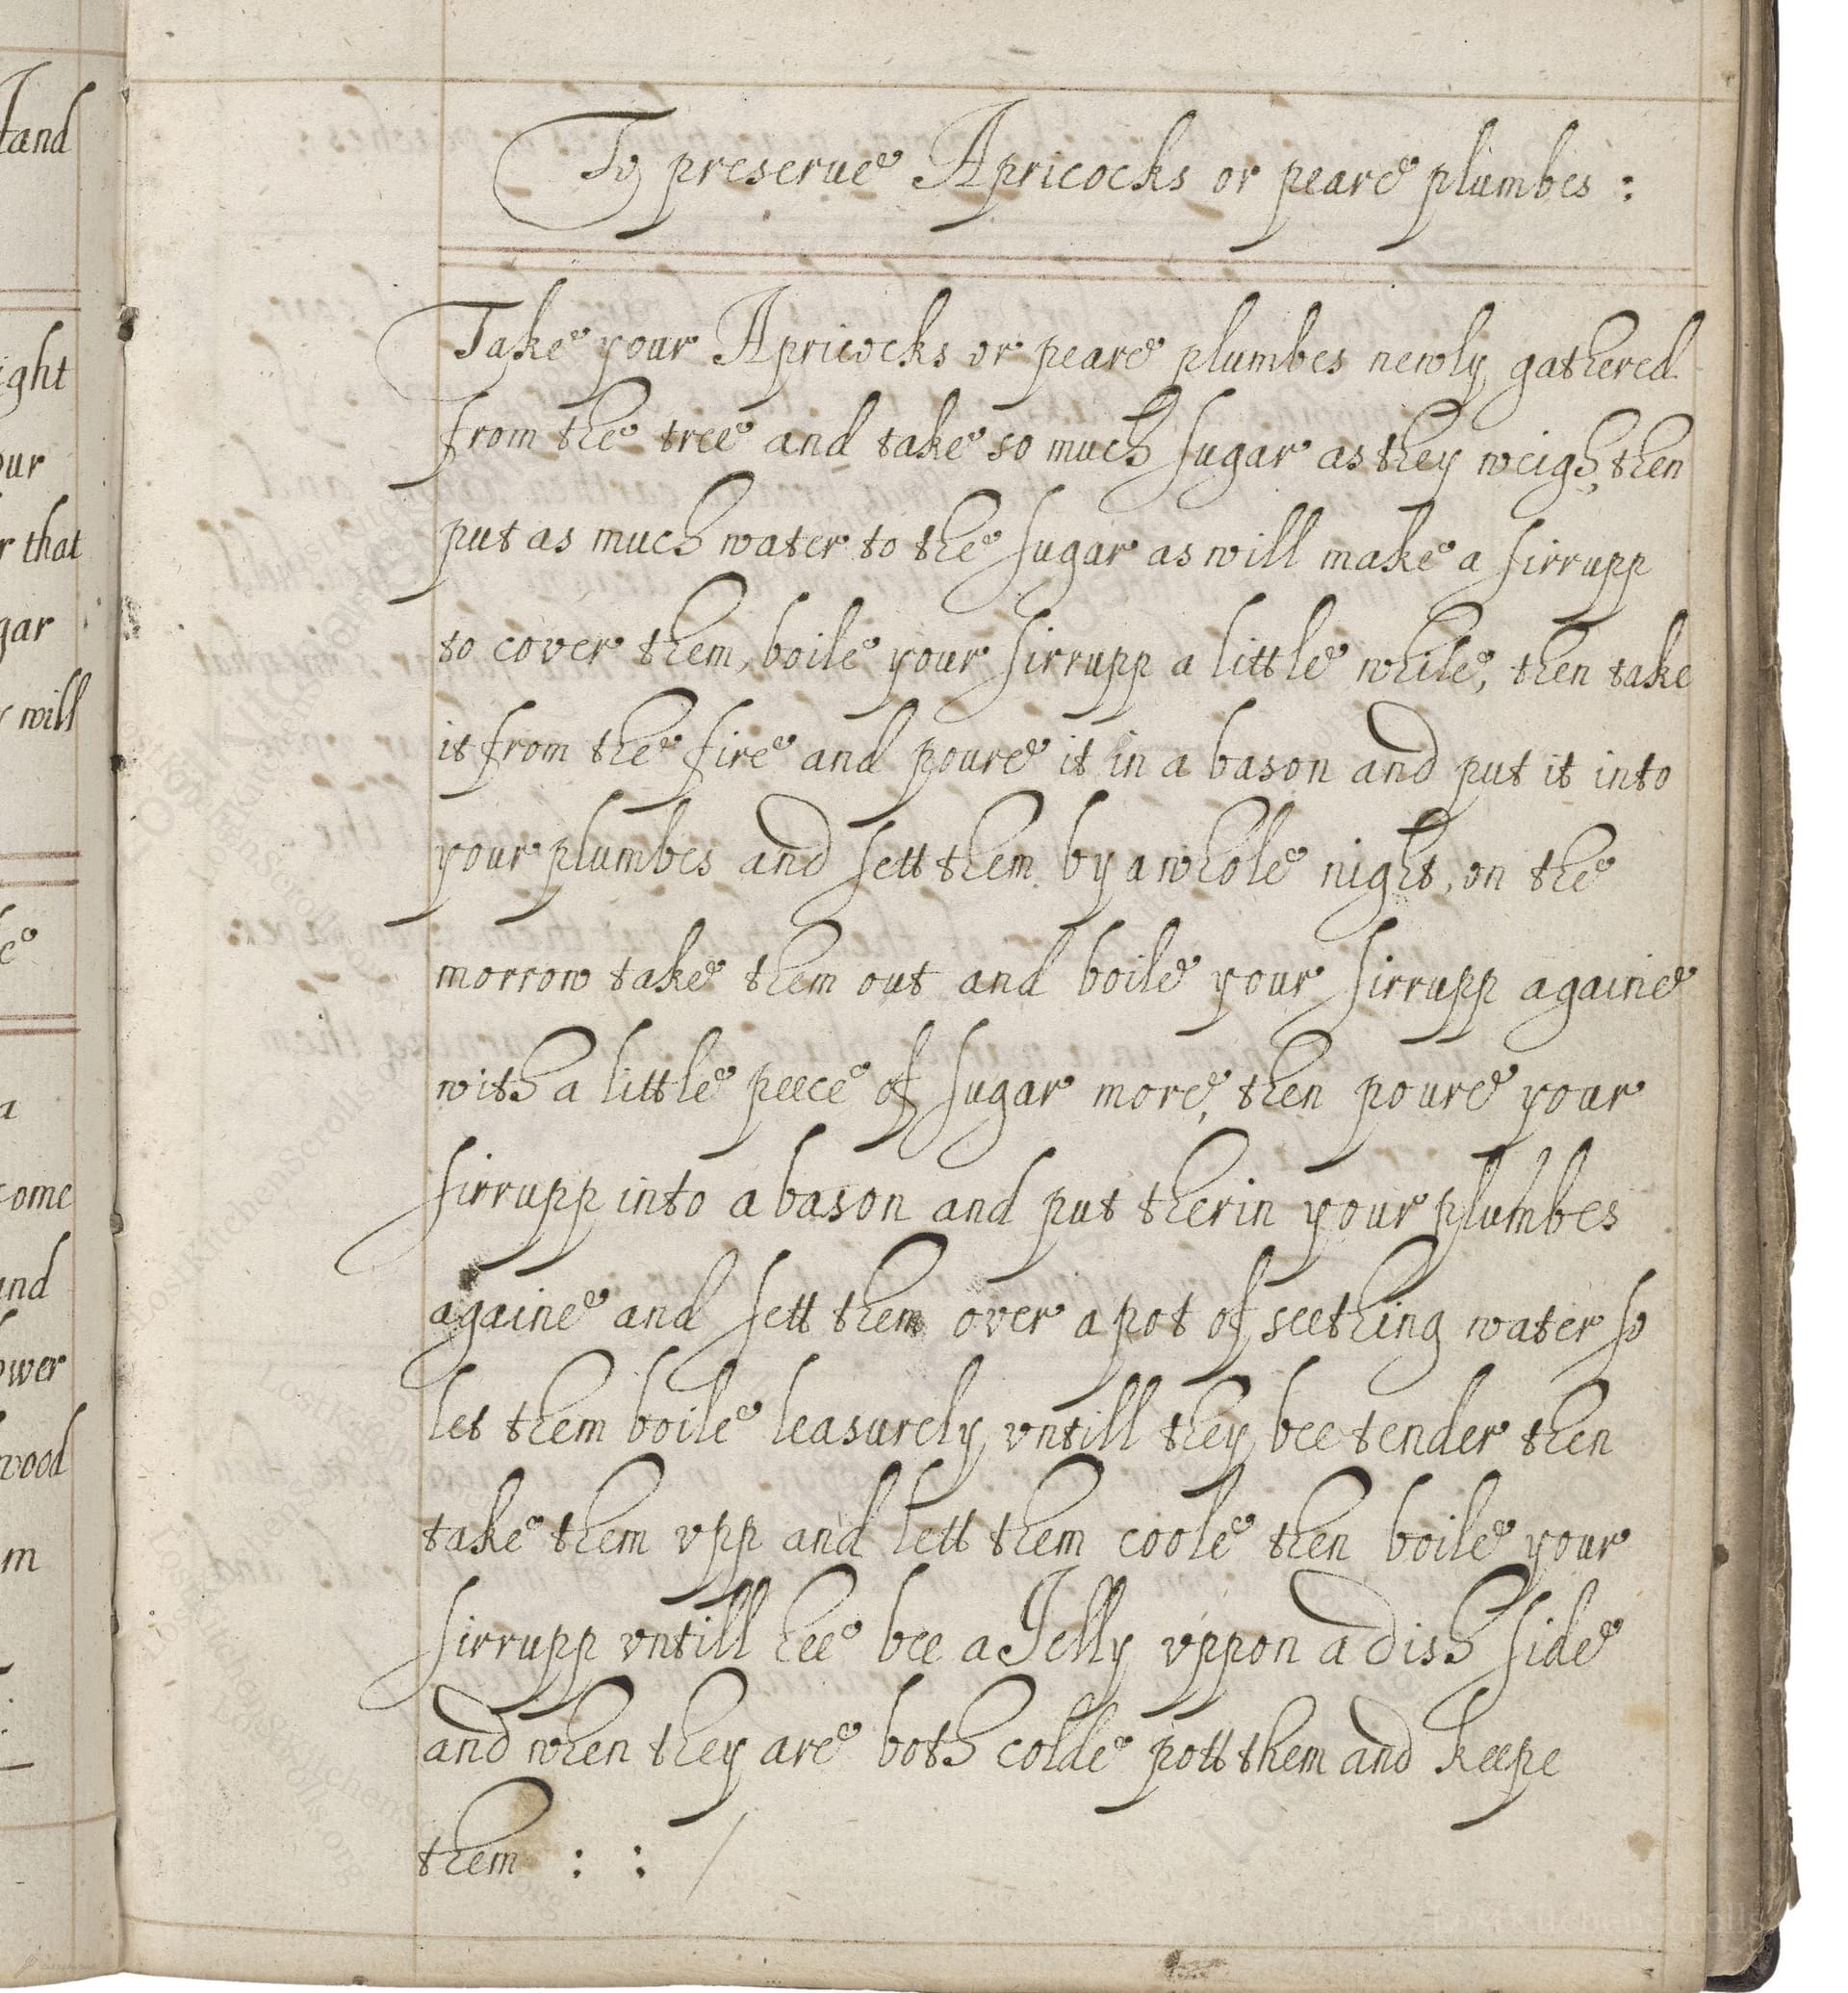 To preserue Apricocks or peare plumbes :
Take your Apricocks or peare plumbes newly gathered
from the tree and take so much sugar as they weigh, then
put as much water to the sugar as will make a sirrupp
to cover them, boile your sirrupp a little while, then take
it from the fire and poure it in a bason and put it into
your plumbes and sett them by a whole night, on the
morrow take them out and boile your sirrupp againe
with a little peece of sugar more, then poure your
sirrupp into a bason and put therin your plumbes
againe and sett them over a pot of seething water so
let them boile leasurely vntill they bee tender then
take them vpp and lett them coole then boile your
sirrupp vntill hee bee a Jelly vppon a dish side
and when they are both colde pott them and keepe
them : : /
tand
ight
our
r that
gar
will
a
come
and
ower
wood
m